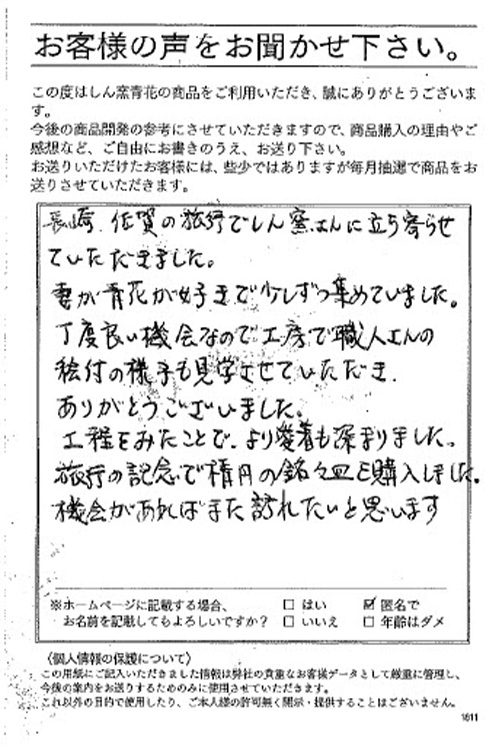 お客様の声をお聞かせ下さい。
この度はしん窯青花の商品をご利用いただき、誠にありがとうございま
す。
今後の商品開発の参考にさせていただきますので、商品購入の理由やご
感想など、ご自由にお書きのうえ、お送り下さい。
お送りいただけたお客様には、些少ではありますが毎月抽選で商品をお
送りさせていただきます。
長崎、佐賀の旅行でしん窯さんに立ち寄らせ
ていただきました。
妻が青花が好きで少しずつ集めていました。
丁度良い機会なので工房で職人さんの
絵付の様子も見学させていただき、
ありがとうございました。
工程をみたことで、より愛着も深まりました。
旅行の記念で楕円の銘々皿を購入しました。
機会があればまた訪れたいと思います
※ホームページに記載する場合、 □ はい ☑ 匿名で
お名前を記載してもよろしいですか? □ いいえ □ 年齢はダメ
〈個人情報の保護について〉
この用紙にご記入いただきました情報は弊社の貴重なお客様データとして厳重に管理し、
今後の案内をお送りするためのみに使用させていただきます。
これ以外の目的で使用したり、ご本人様の許可無く開示・提供することはございません。
1611